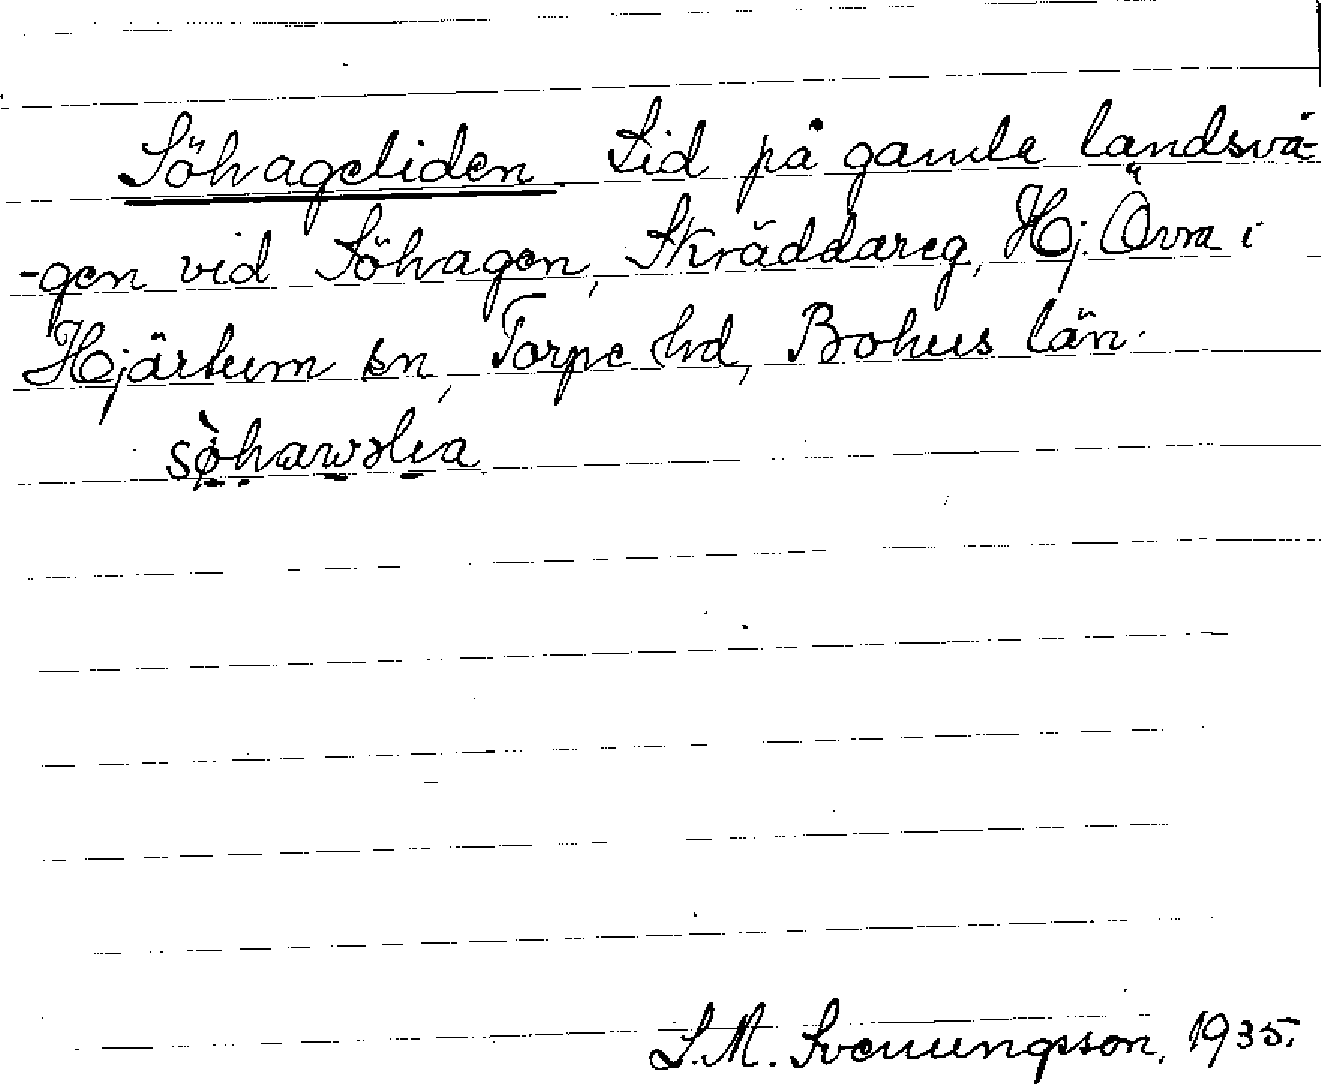 Söhageliden Lid på gamla landsvä-
-gen vid Söhagen, Skräddareg, Hj. Övra i
Hjärtum sn, Torpe hd, Bohus län.
sø̀hawəlia
S.M. Svenungsson, 1935.